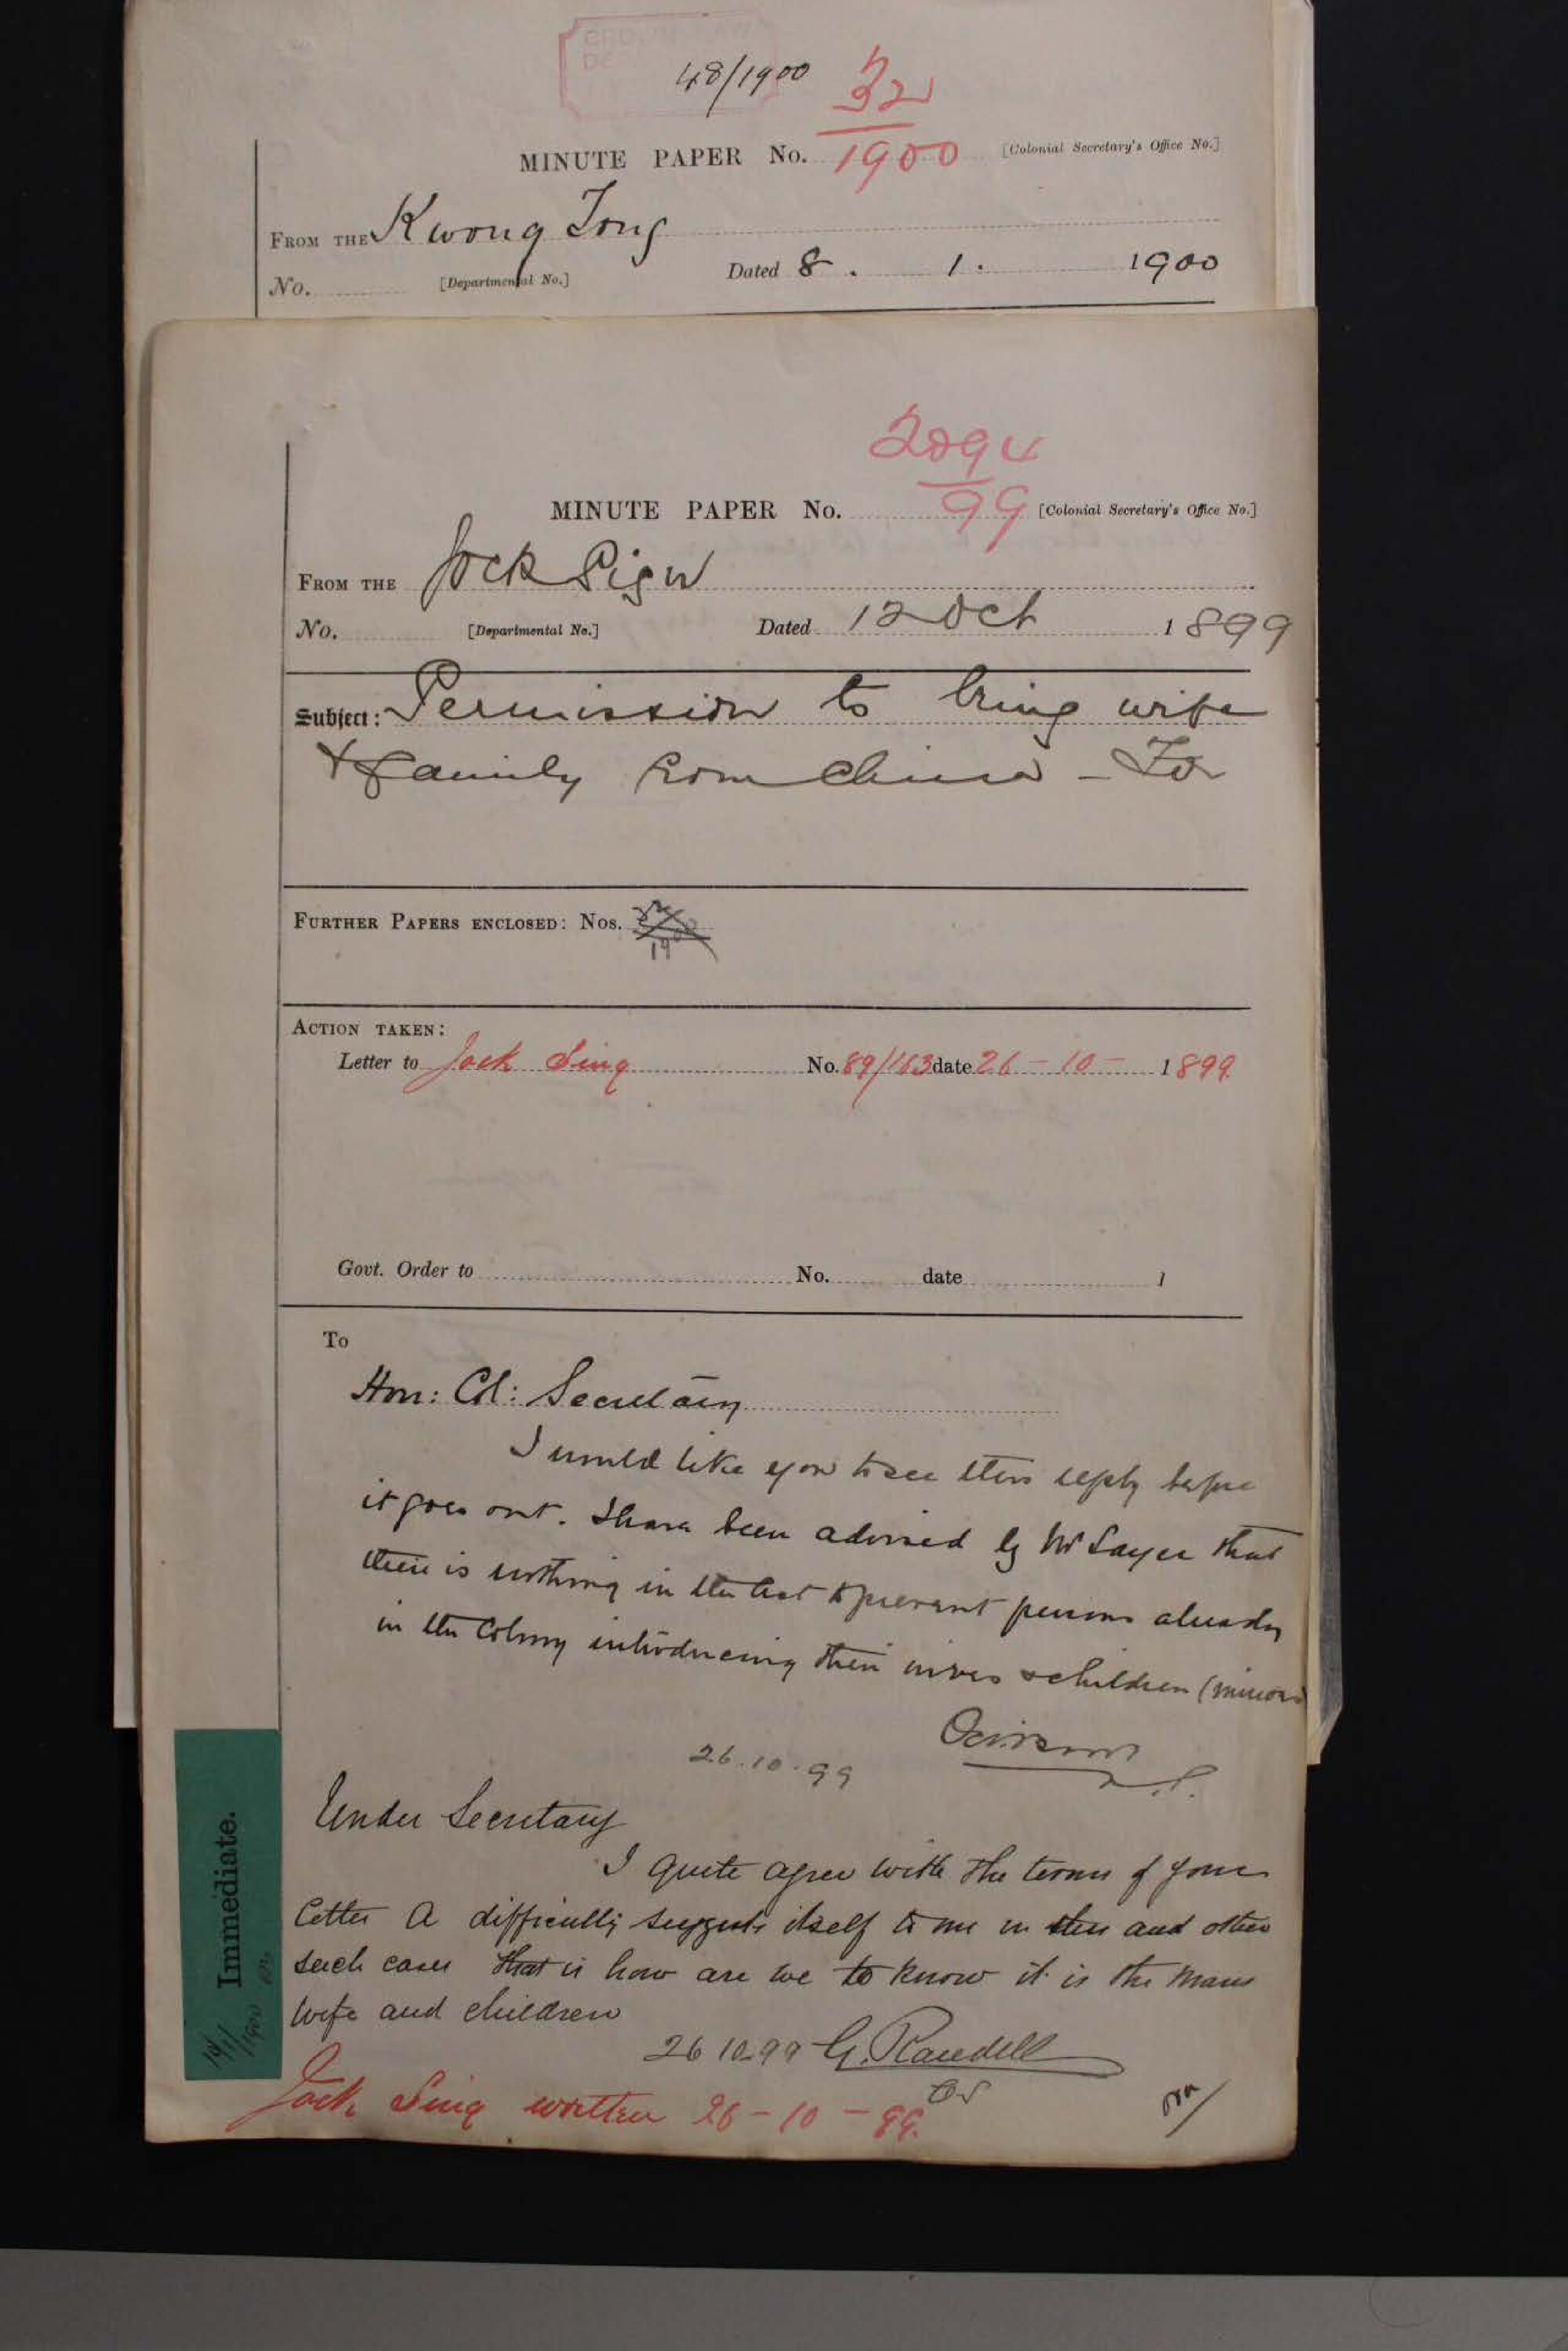 48/1900
32
MINUTE PAPER No. 1900 [Colonial Secretary's Office No.]
FROM THE Kwong Tong
No. [Departmental No.] Dated 8. 1. 1900
2894
MINUTE PAPER No. 99 [Colonial Secretary's Office No.]
FROM THE Jock Sign
No. [Departmental No.] Dated 12 Oct 1899
Subject: Permission to bring wife
& family from China - For
FURTHER PAPERS ENCLOSED: Nos. 32
1900
ACTION TAKEN:
Letter to Jock Sing No. 89/163 date 26 - 10 - 1899.
Govt. Order to No. date 1
To
Hon: Col: Secretary
I would like you to see this reply before
it goes out. I have been advised by Mr Sayer that
there is nothing in the Act to prevent persons already
in the Colony introducing their wives & children (minors
26.10.99
Under Secretary
I quite agree with the terms of your
letter A difficulty suggests itself to me in this and other
such cases that is how are we to know it is the mans
wife and children
26 10.99 G. Randell
CS
Immediate.
Jock Sing written 26 - 10 - 99.